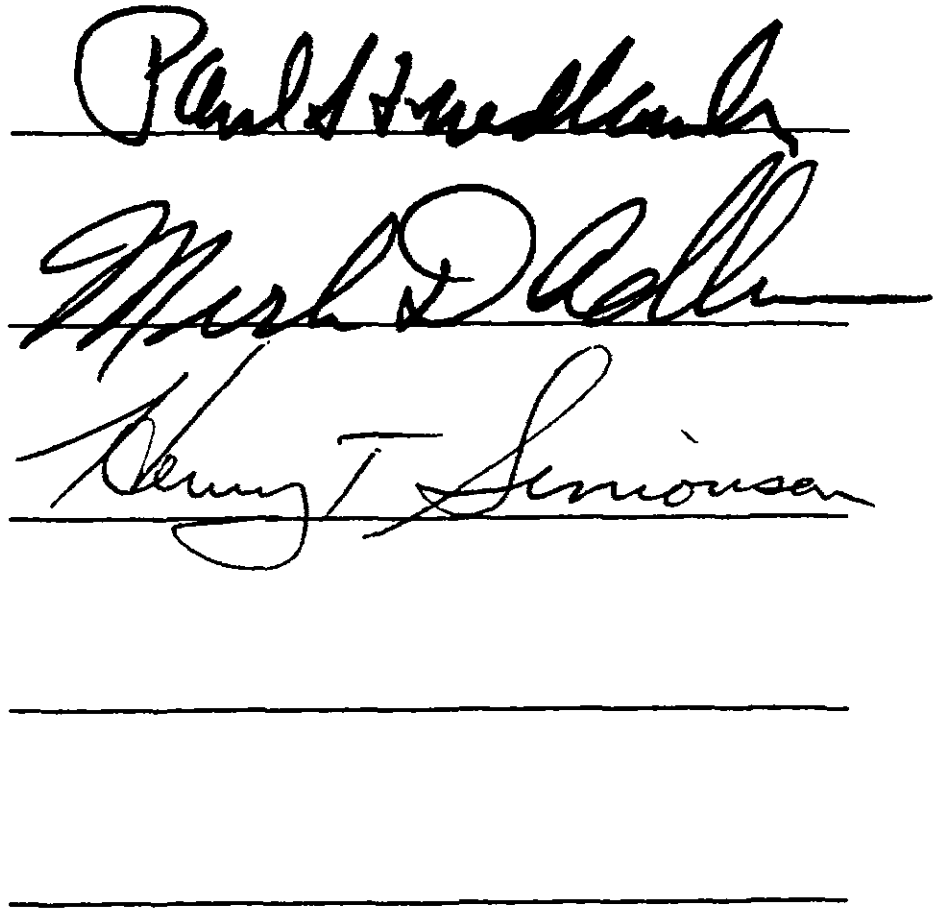 Paul S Friedlander
Mark D Adler
Henry T Simonson